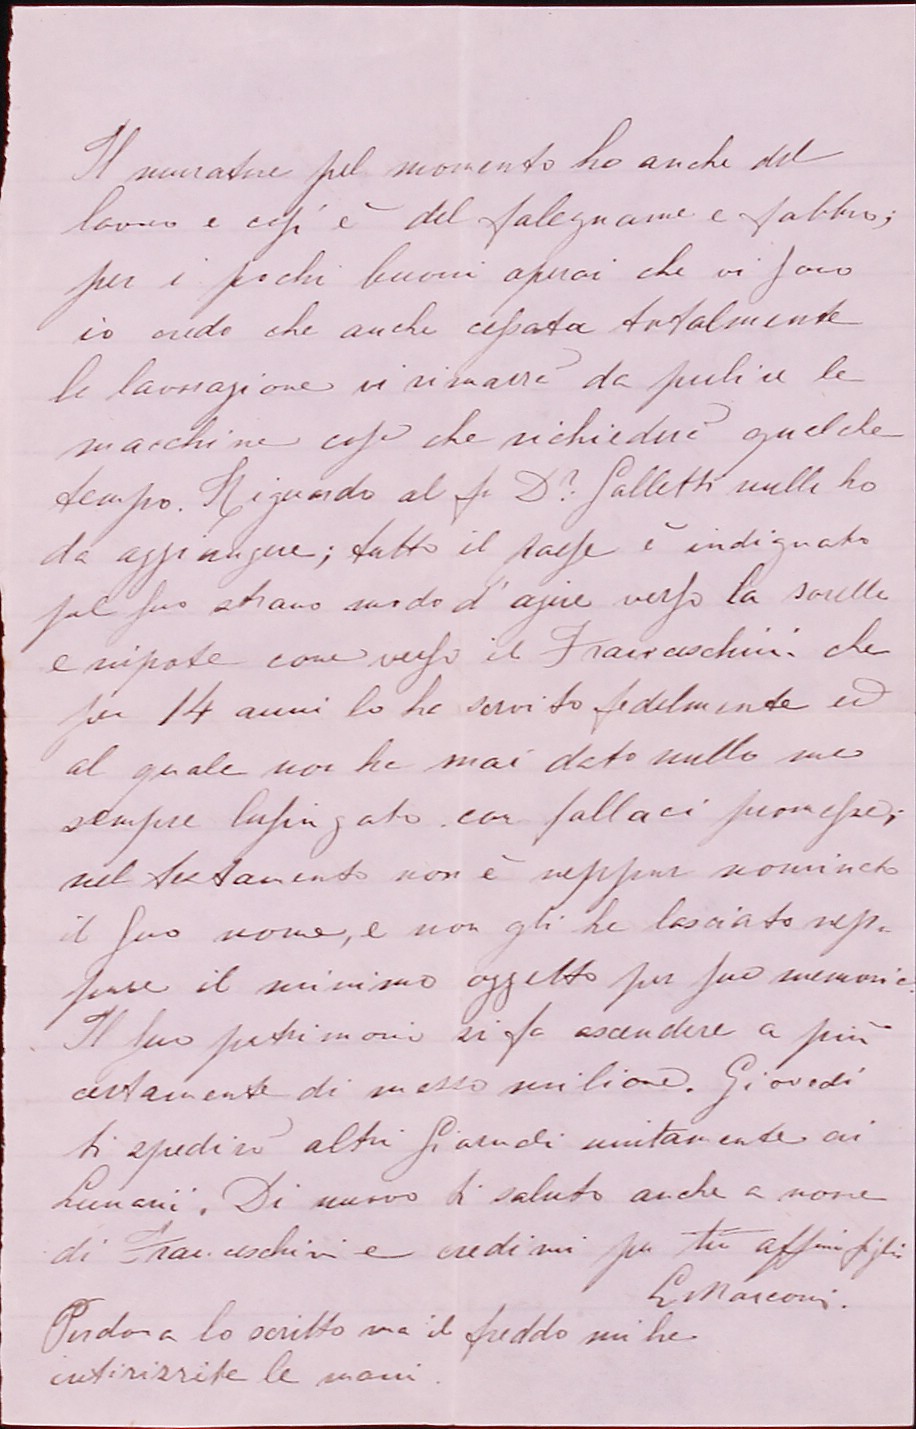 Il muratore pel momento ha anche del
lavoro e così è del falegname e fabbro;
per i pochi buoni operai che vi sono
io credo che anche cessata totalmente
la lavorazione vi rimarrà da pulire le
macchine cosa che richiederà qualche
tempo. Riguardo al fu Dr. Galletti nulla ho
da aggiungere; tutto il paese è indignato
pel suo strano modo d'agire verso la sorella
e nipote come verso il Franceschini che
per 14 anni lo ha servito fedelmente ed
al quale non ha mai dato nulla ma
sempre lusingato con fallaci promesse;
nel testamento non è neppur nominato
il suo nome, e non gli ha lasciato nep-
pure il minimo oggetto per sua memoria.
Il suo patrimonio si fa ascendere a più
certamente di mezzo milione. Giovedì
ti spedirò altri Giornali unitamente ai
Lunarii. Di nuovo ti saluto anche a nome
di Franceschini e credimi pel tuo affmo figlio
G Marconi.
Perdona lo scritto ma il freddo mi ha
intirizzite le mani.